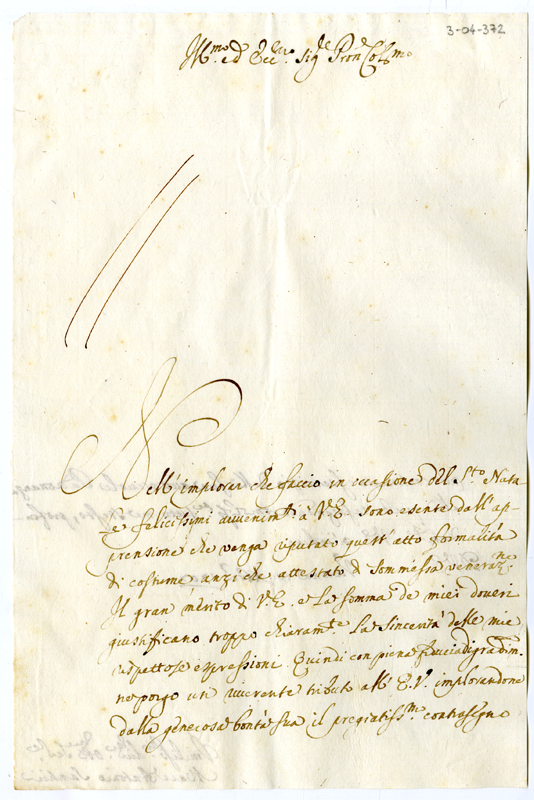 3-04-372
Ill.mo ed Ecc.mo Sig.re Pron Col.mo
Nell'implorar che faccio in occasione del S.to Nata-
le felicissimi avvenim.ti à V.E. sono esente dall'ap-
prensione che venga riputato quest'atto formalità
di costume, anzi che attestato di sommessa veneraz.ne
Il gran mérito di V.E. e la somma de miei doveri
giustificano troppo chiaram.te la sincerità delle mie
rispettose espressioni. Quindi con piena fiducia di gradim.
ne porgo un riverente tributo all'E.V. implorandone
dalla generosa bontà sua il pregiatiss.mo contrasegno